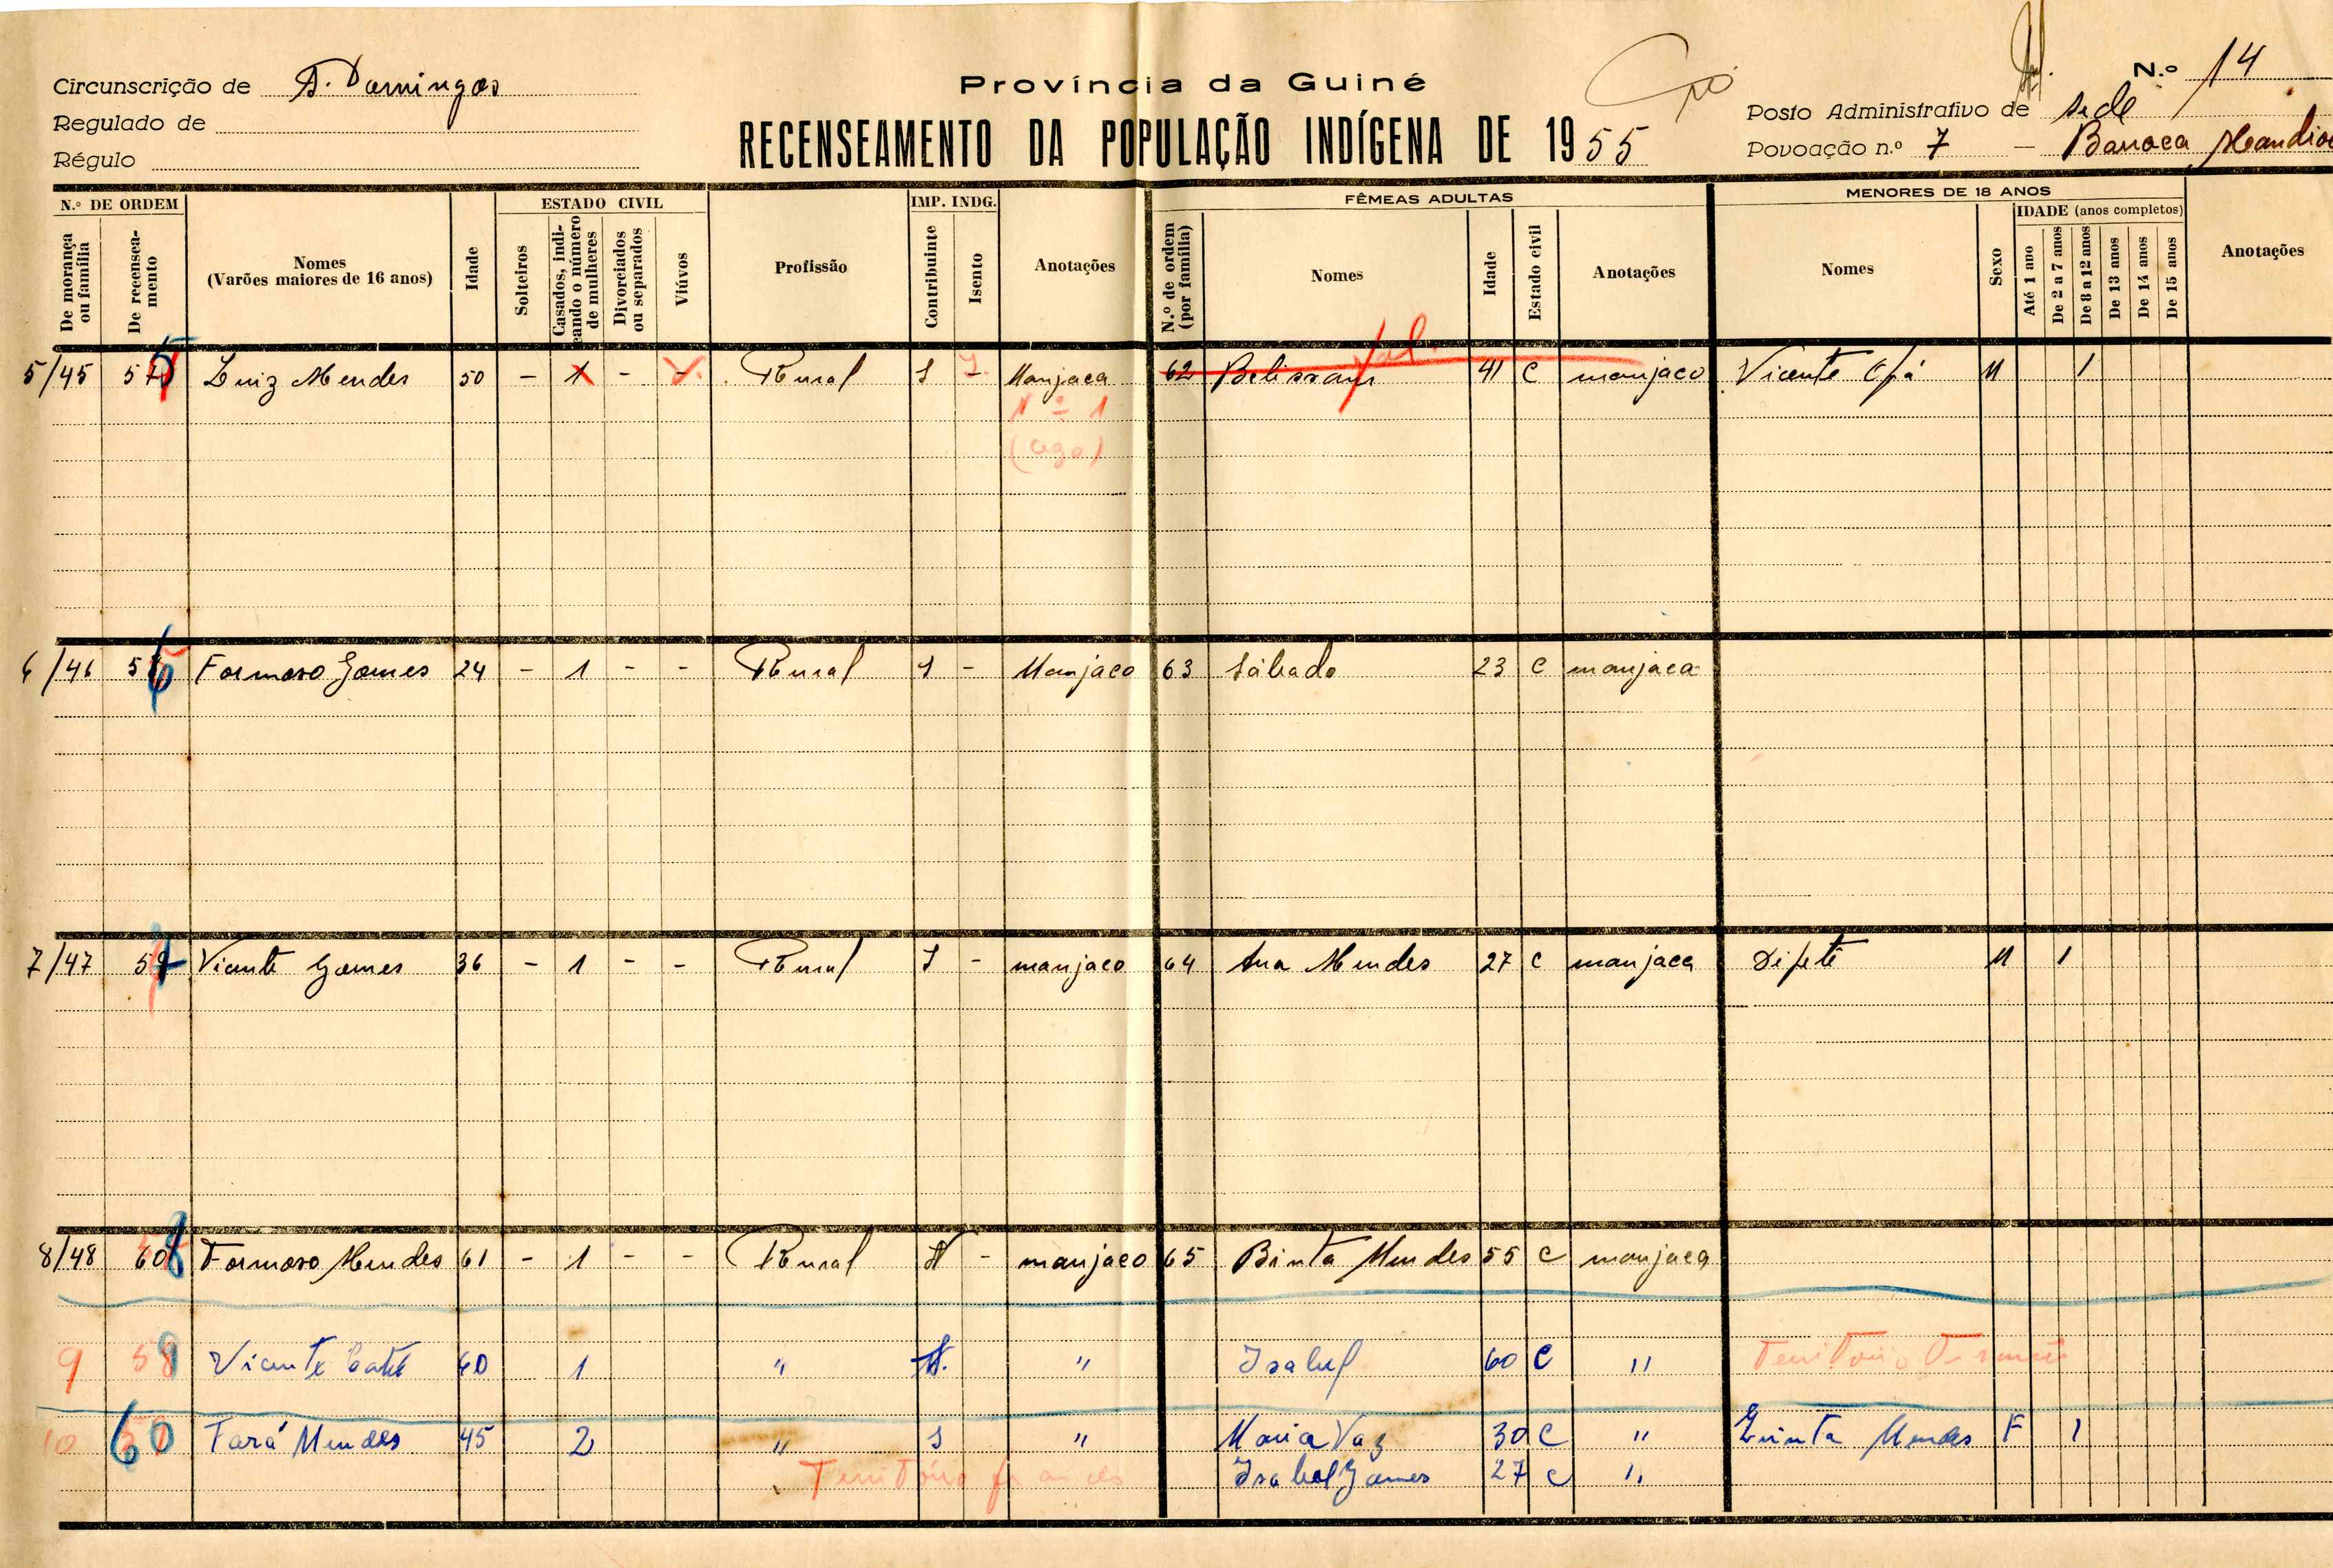 Província da Guiné
N.º 14
Circunscrição de S. Domingos
Posto Administrativo de sede
Regulado de
RECENSEAMENTO DA POPULAÇÃO INDÍGENA DE 1955
Povoação n.º 7 — Barraca
Régulo
N.º DE ORDEM
De morança ou família
De recenseamento
Nomes
(Varões maiores de 16 anos)
Idade
ESTADO CIVIL
Solteiros
Casados, indicando o número de mulheres
Divorciados ou separados
Viúvos
Profissão
IMP. INDG.
Contribuinte
Isento
Anotações
FÊMEAS ADULTAS
N.º de ordem (por família)
Nomes
Idade
Estado civil
Anotações
MENORES DE 18 ANOS
Nomes
Sexo
IDADE (anos completos)
Até 1 ano
De 2 a 7 anos
De 8 a 12 anos
De 13 anos
De 14 anos
De 15 anos
Anotações
5/45 Luiz Mendes 50 - 1 - - Rural 1 - Manjaca 62 41 C manjaco Vicente M 1
fal.
1 - 1
(cego)
6/46 56 Formoso Gomes 24 - 1 - - Rural 1 - Manjaco 63 Sábado 23 C manjaca
7/47 Vicente Gomes 36 - 1 - - Rural 1 - manjaco 64 Ana Mendes 27 C manjaca M 1
8/48 Formoso Mendes 61 - 1 - - Rural - manjaco 65 Binta Mendes 55 C manjaca
9 Vicente 60 1 " " Isabel 60 C " Território
10 60 Fará Mendes 45 2 " 1 " Maria Vaz 30 C " Mendes F 1
Território francês Isabel Gomes 27 C "